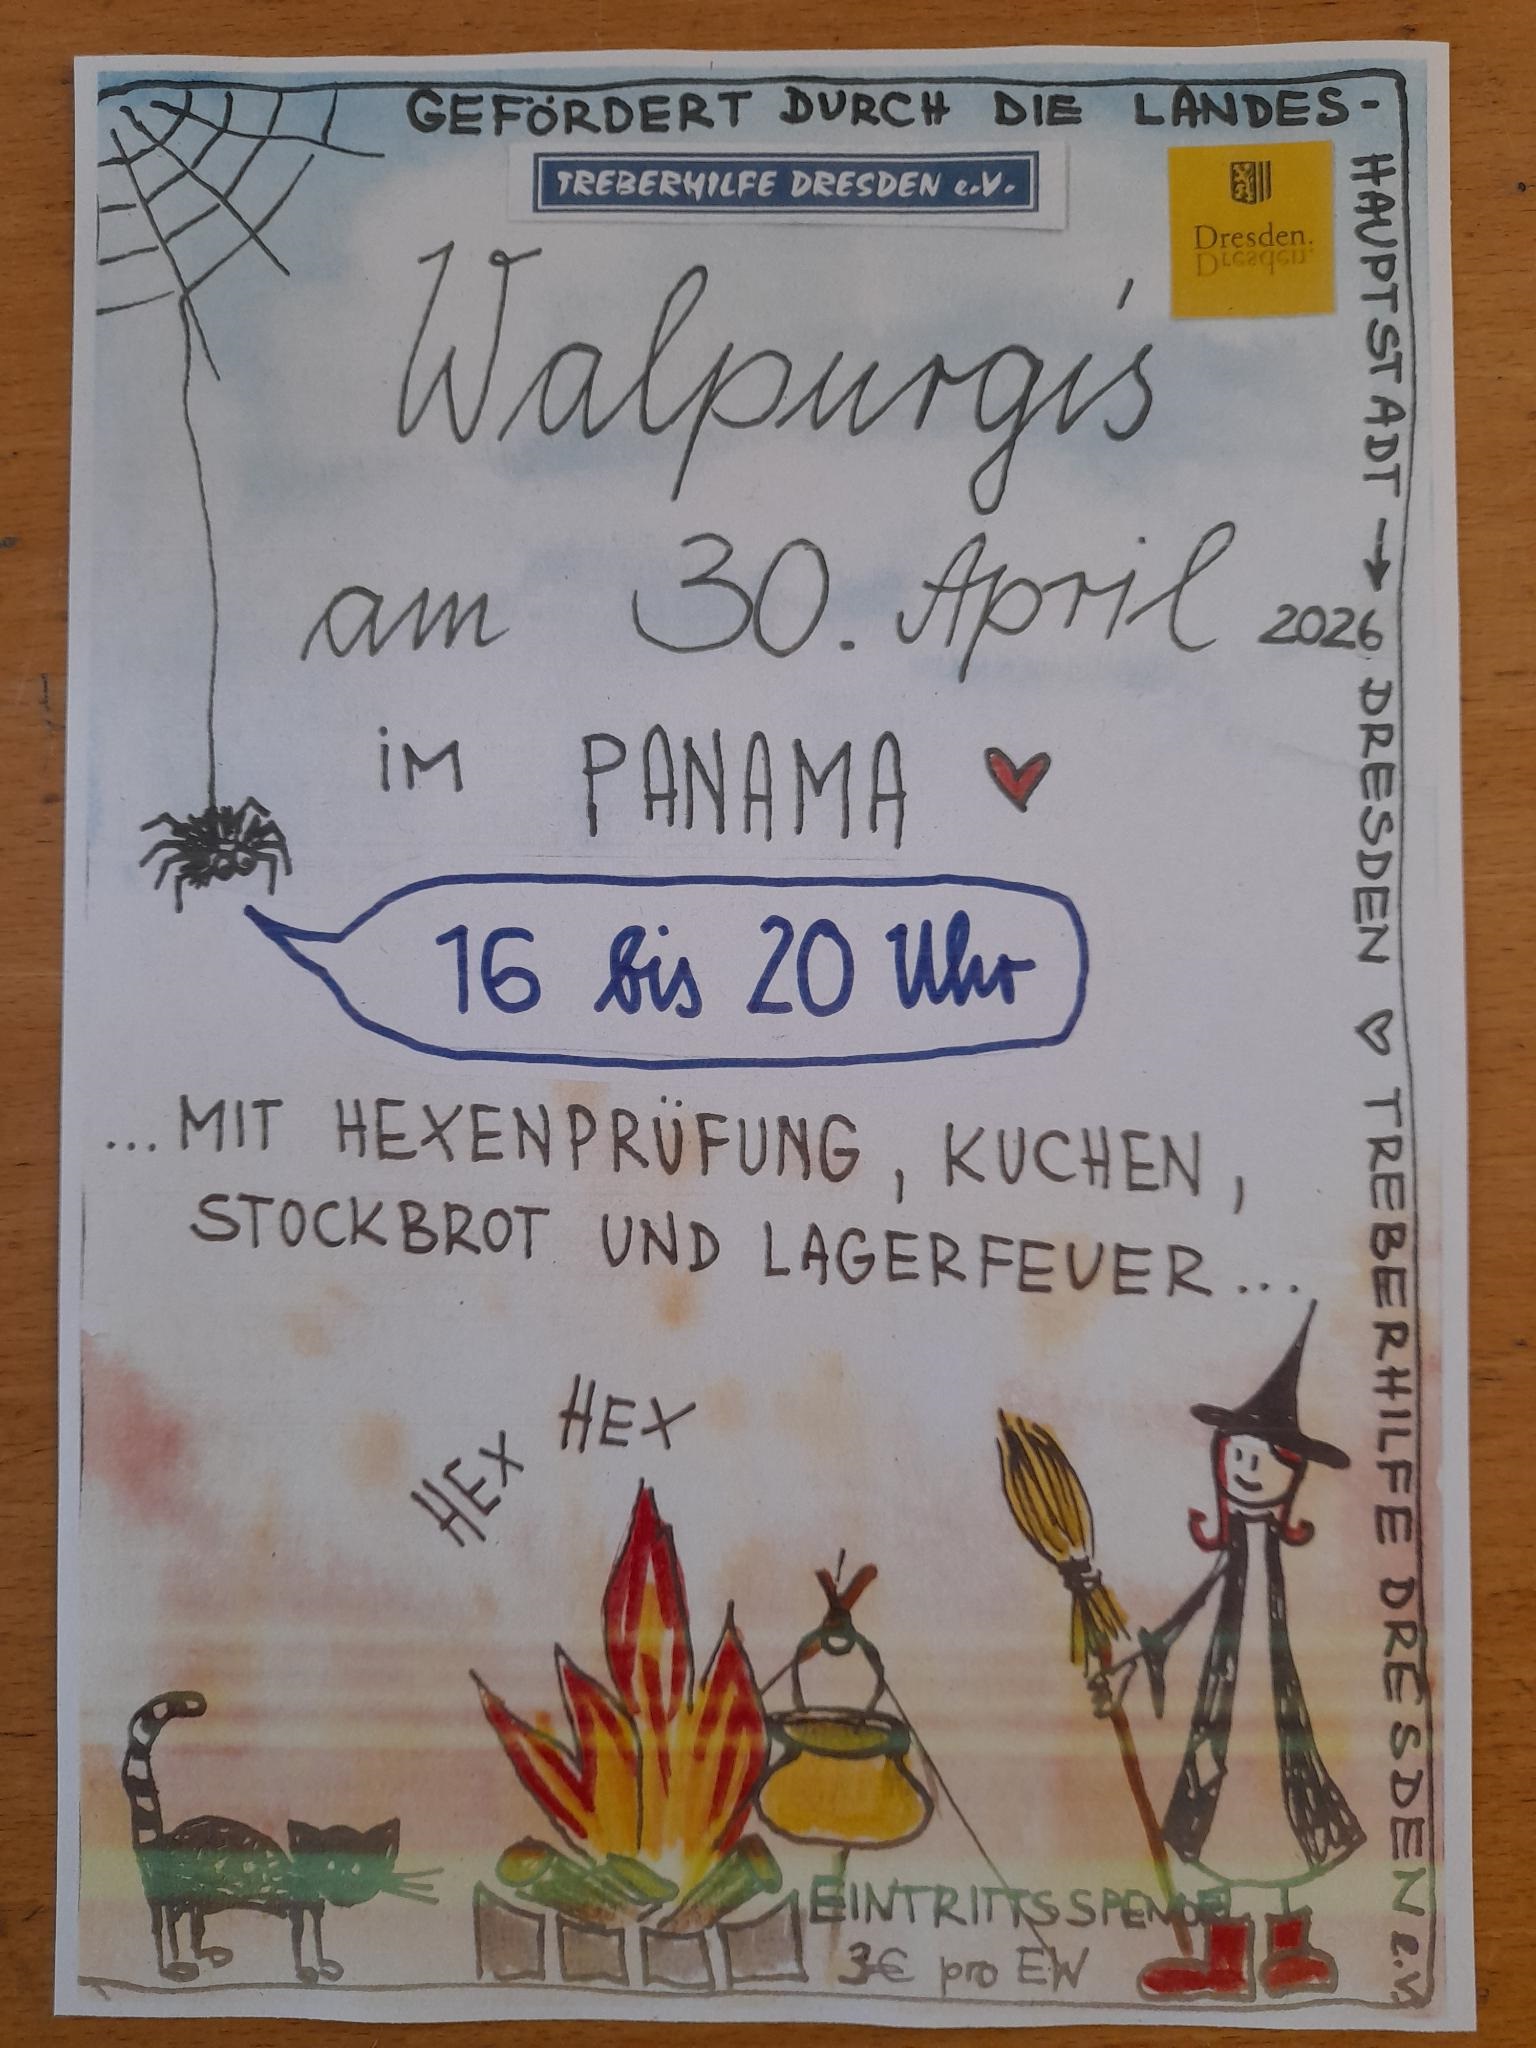 GEFÖRDERT DURCH DIE LANDES-
HAUPTSTADT → DRESDEN ♡ TREBERHILFE DRESDEN e.V.
TREBERHILFE DRESDEN e.V.
Dresden.
Dresden.
Walpurgis
am 30. April 2026
im PANAMA ♥
16 bis 20 Uhr
...MIT HEXENPRÜFUNG, KUCHEN,
STOCKBROT UND LAGERFEUER...
HEX HEX
EINTRITTSSPENDE
3€ pro EW